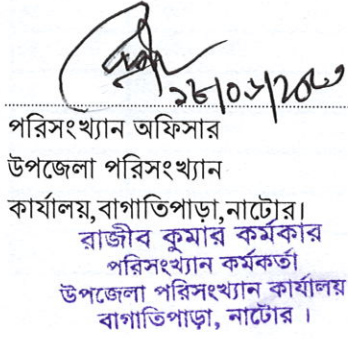 পরিসংখ্যান অফিসার
উপজেলা পরিসংখ্যান
কার্যালয়,বাগাতিপাড়া,নাটোর।
রাজীব কুমার কর্মকার
পরিসংখ্যান কর্মকর্তা
উপজেলা পরিসংখ্যান কার্যালয়
বাগাতিপাড়া, নাটোর ।